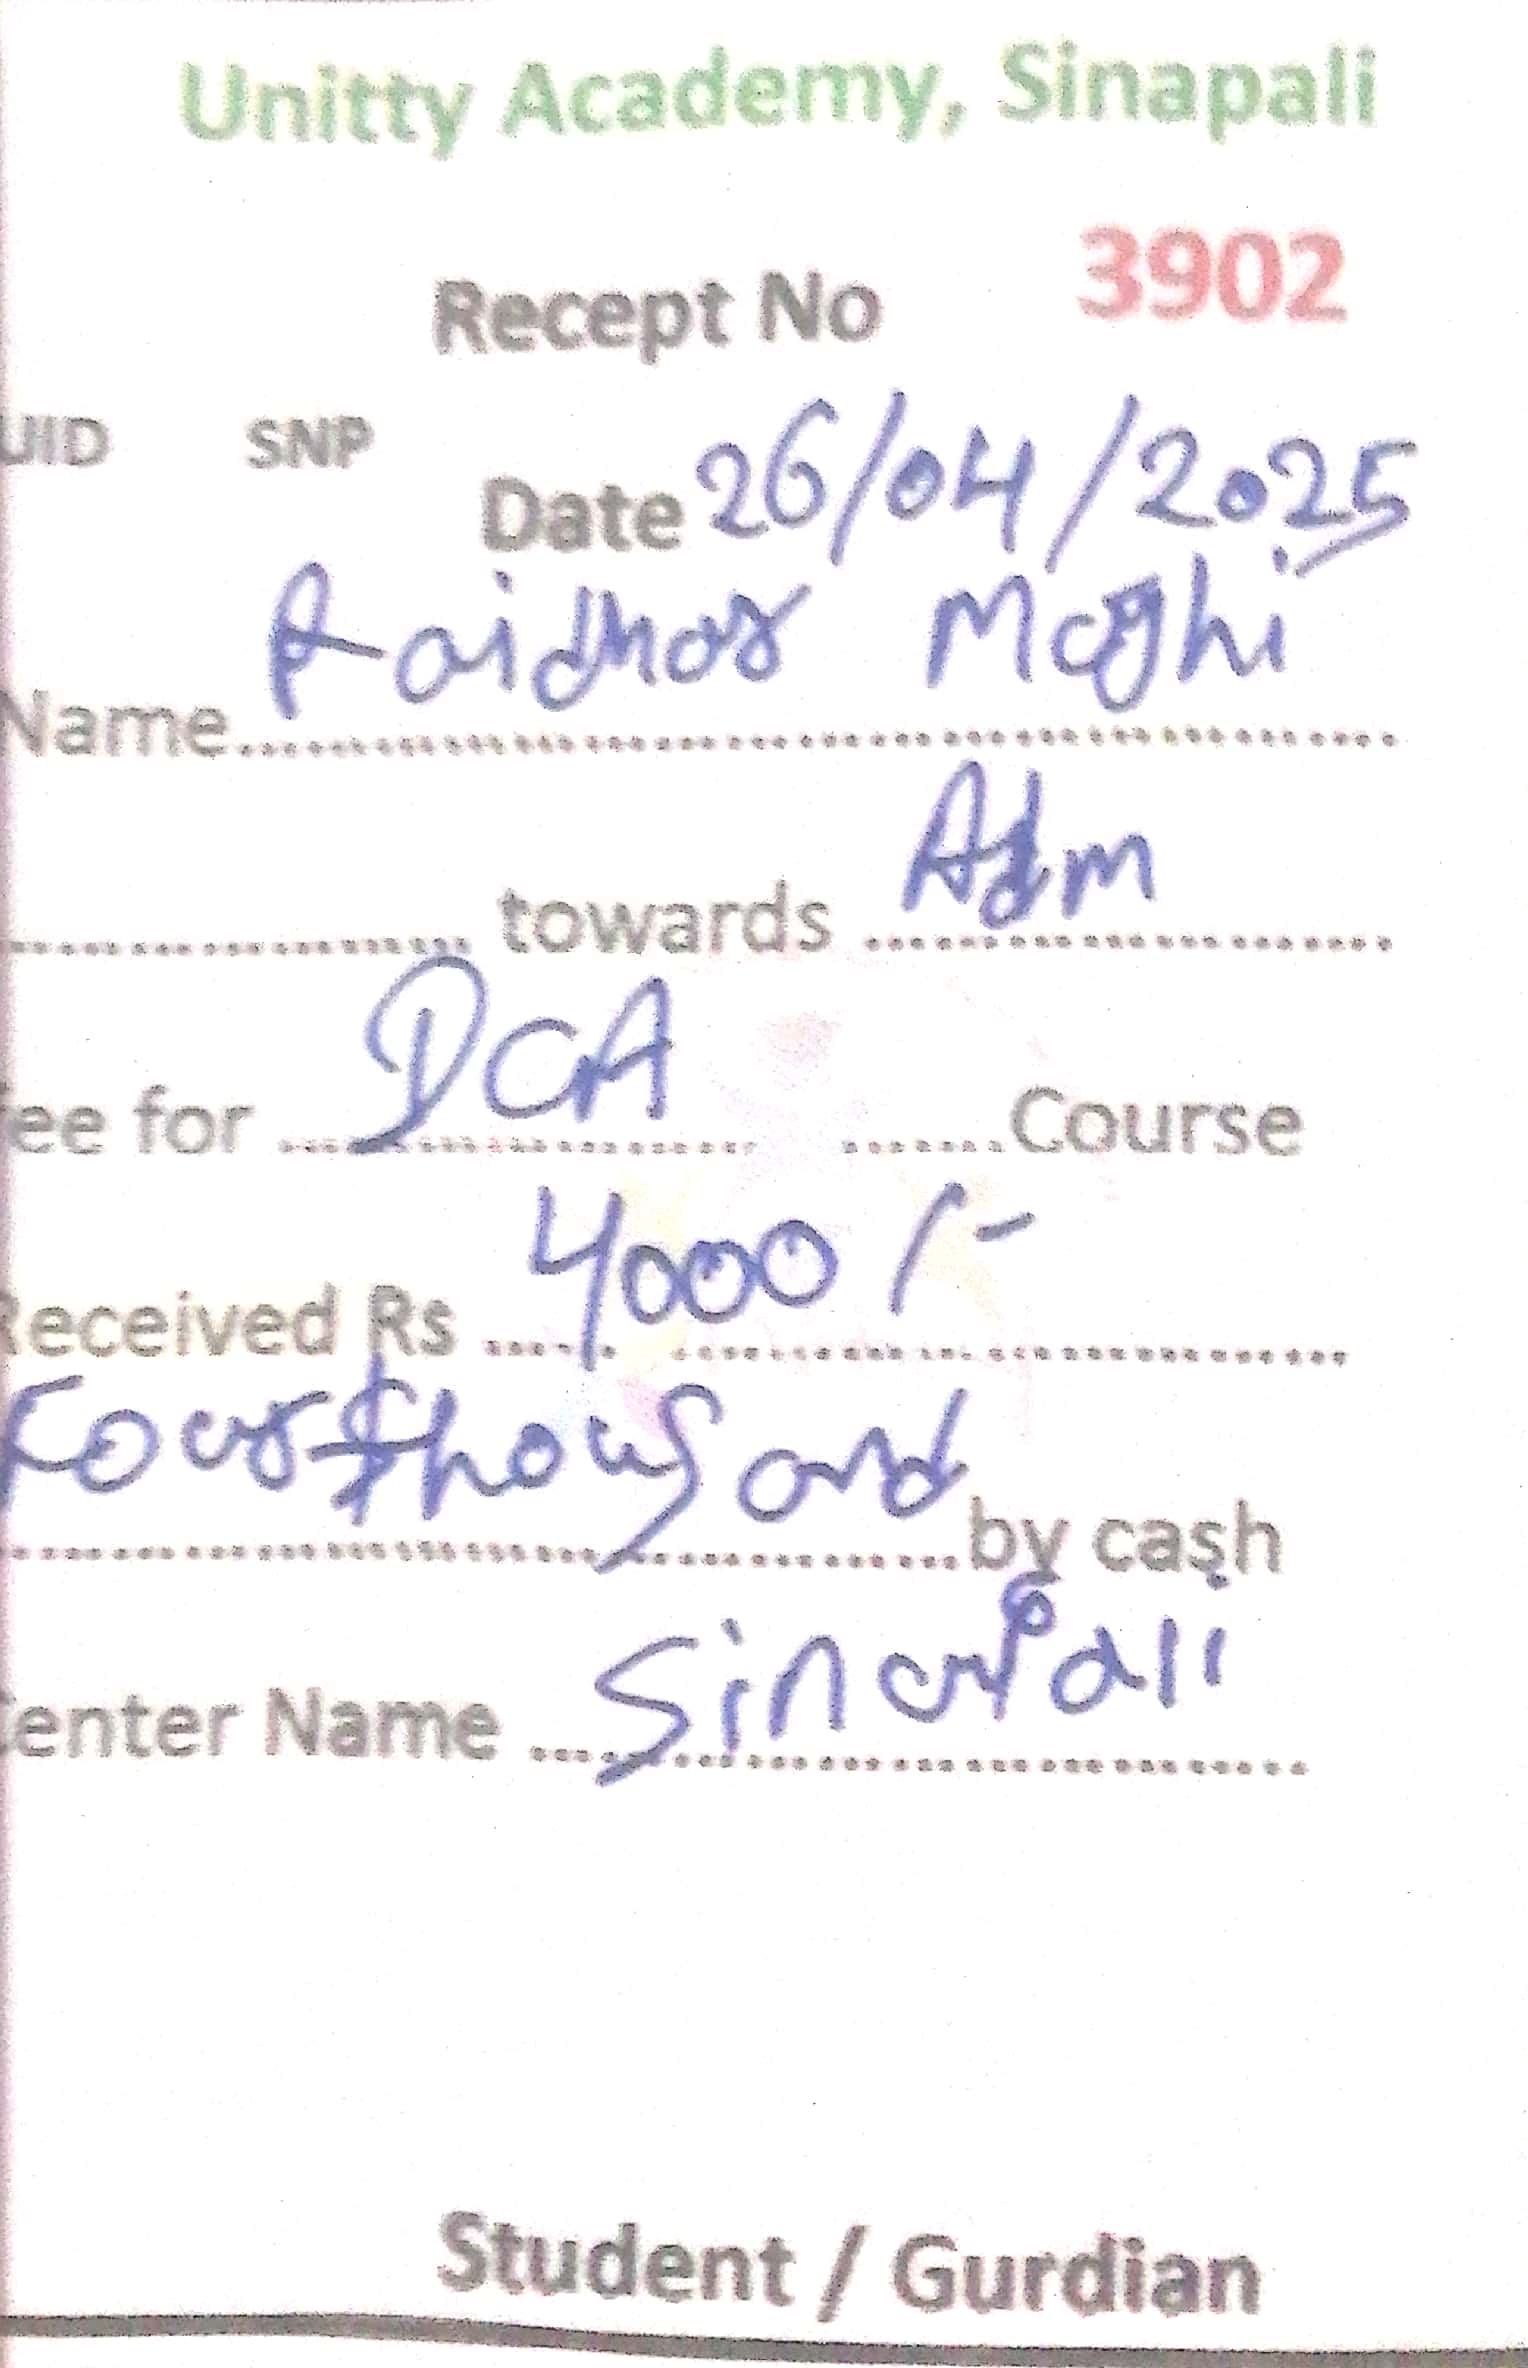 Unitty Academy, Sinapali
Recept No 3902
UID SNP
Date 26/04/2025
Name
towards Adm
ee for DCA Course
Received Rs 4000/-
Four thousand by cash
enter Name Sinapali
Student / Gurdian